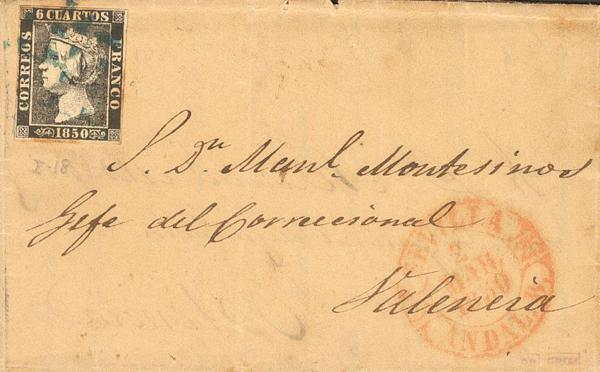 6 CUARTOS
CORREOS
FRANCO
1850
S. Dn. Manl. Montesinos
Gefe del Correccional
Valencia
MAR.
ANDAL